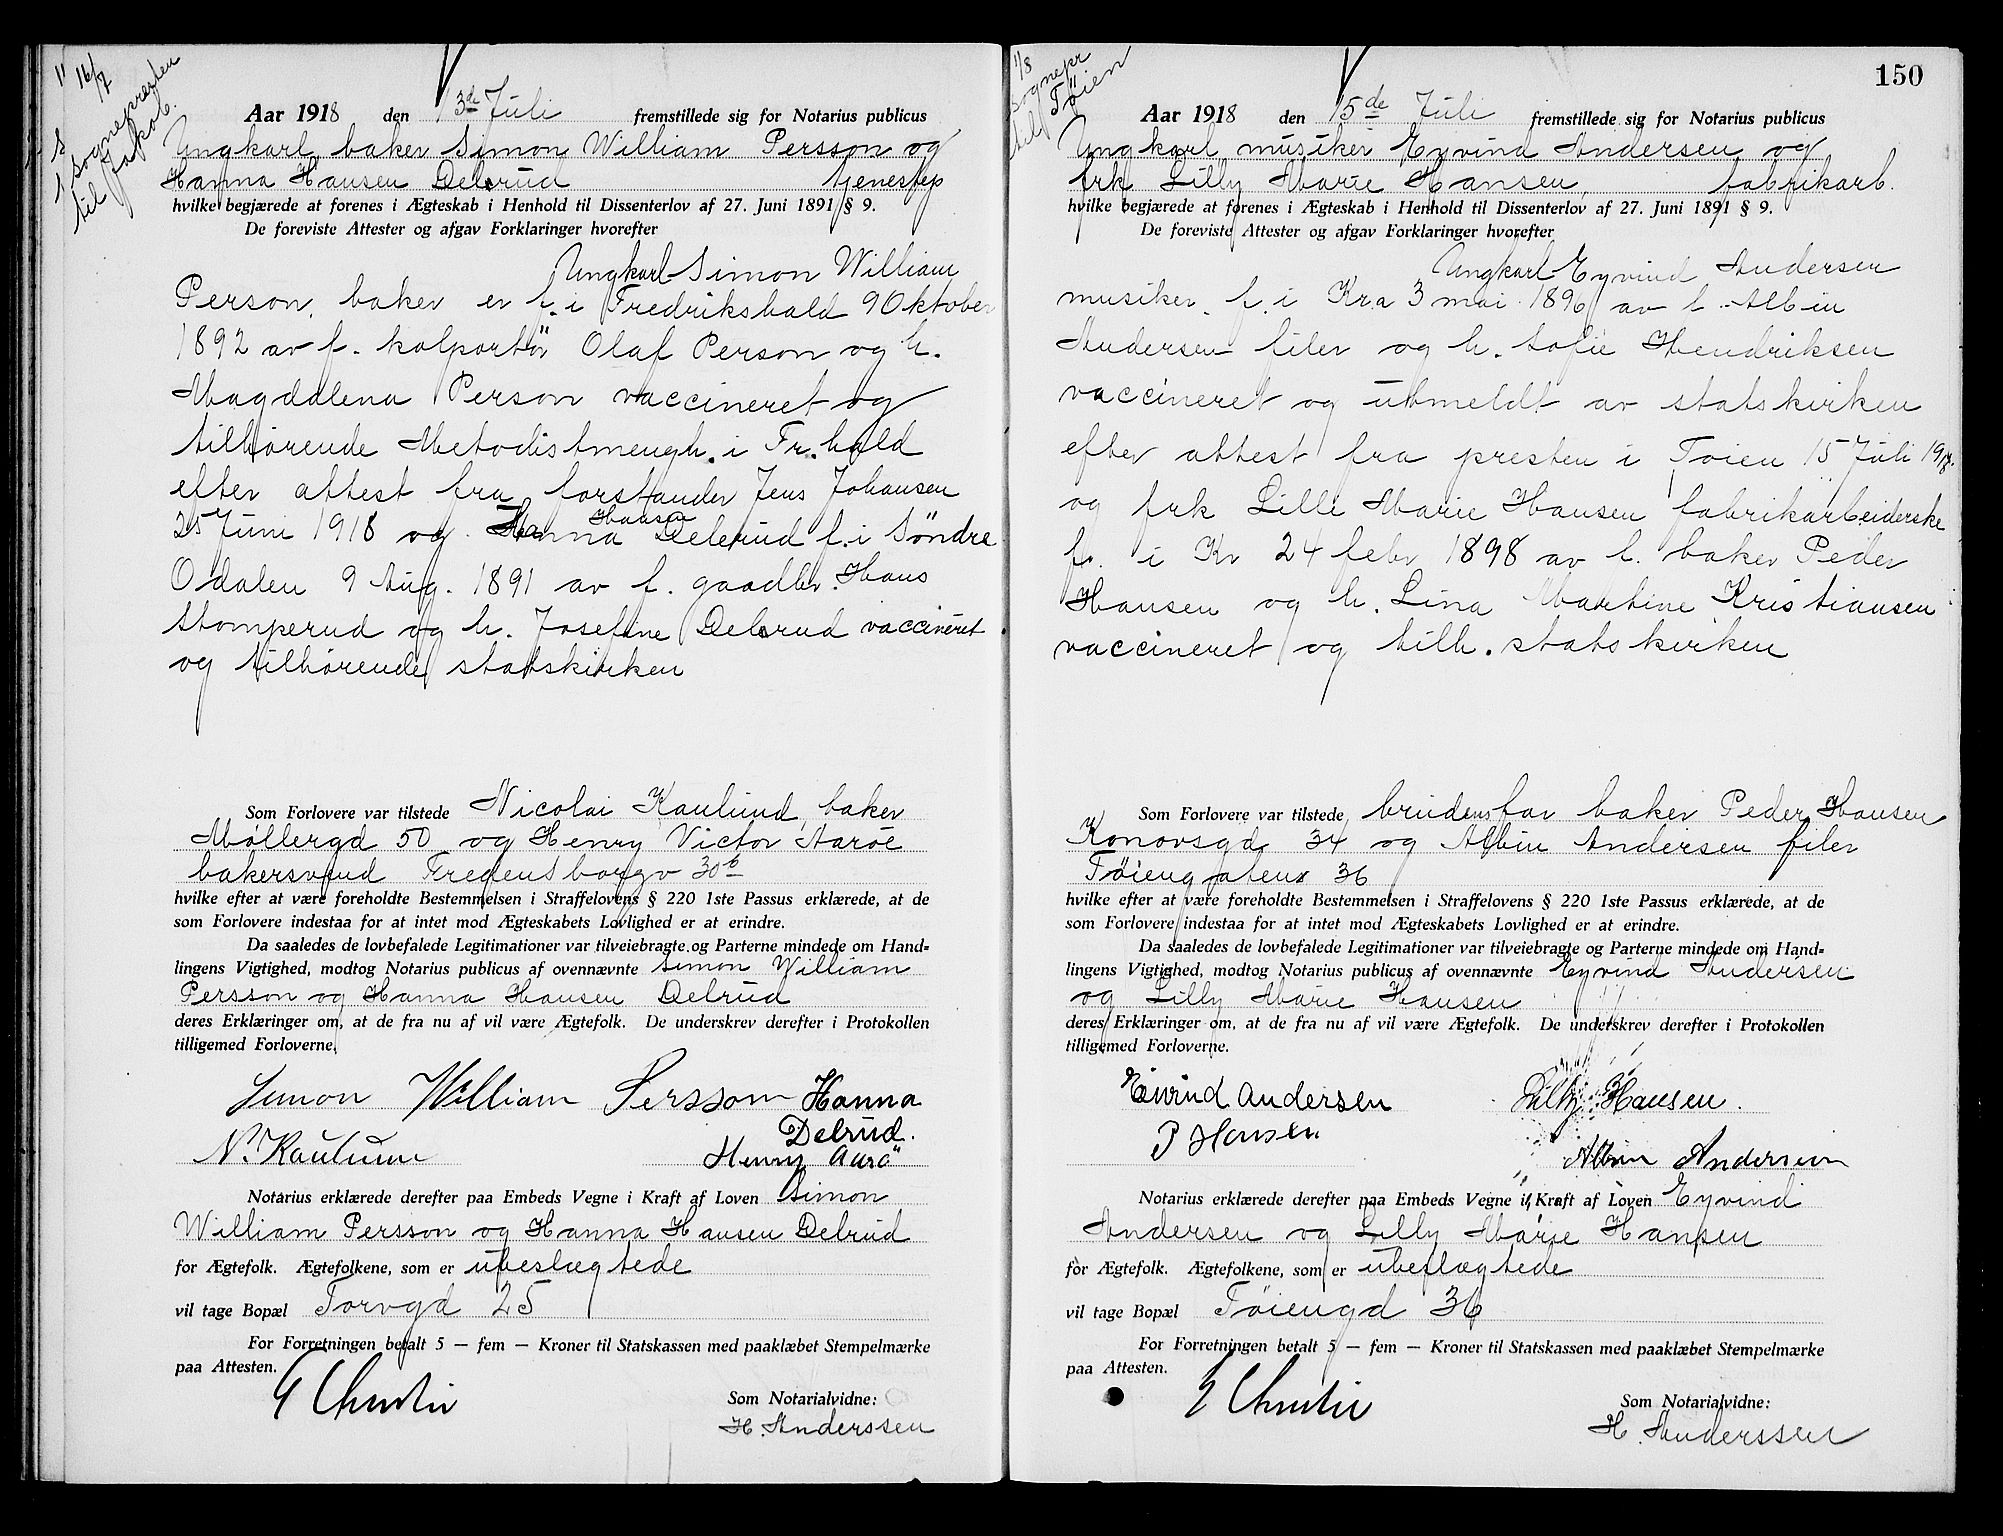 16/7
S sognepresten
til Jakob.
Aar 1918 den 13de Juli fremstillede sig for Notarius publicus
Ungkarl, baker Simon William Persson og
Hanna Hansen Delerud tjenestep
hvilke begjærede at forenes i Ægteskab i Henhold til Dissenterlov af 27. Juni 1891 § 9.
De foreviste Attester og afgav Forklaringer hvorefter
Ungkarl Simon William
Person, baker er f. i Fredrikshald 9 Oktober
1892 av f. kolportör Olaf Person og h.
Magdalena Person vaccineret og
tilhørende Metodistmengh. i Fr.hald
efter attest fra forstander Jens Johansen
25 Juni 1918 og Hanna Hansen Delerud f. i Söndre
Odalen 9 Aug. 1891 av f. gaardbr. Hans
Stomperud og h. Josefine Delerud vaccineret
og tilhørende statskirken
Som Forlovere var tilstede Nicolai Kaulund, baker
Møllergd 50 og Henry Victor Aarøe
bakersvend Fredensborgv 30b
hvilke efter at være foreholdte Bestemmelsen i Straffelovens § 220 1ste Passus erklærede, at de
som Forlovere indestaa for at intet mod Ægteskabets Lovlighed er at erindre.
Da saaledes de lovbefalede Legitimationer var tilveiebragte og Parterne mindede om Hand-
lingens Vigtighed, modtog Notarius publicus af ovennævnte Simon William
Persson og Hanna Hansen Delrud
deres Erklæringer om, at de fra nu af vil være Ægtefolk. De underskrev derefter i Protokollen
tilligemed Forloverne.
Simon William Persson Hanna
Delrud.
N. Kaulum Henry Aarö
Notarius erklærede derefter paa Embeds Vegne i Kraft af Loven Simon
William Persson og Hanna Hansen Delrud
for Ægtefolk. Ægtefolkene, som er ubeslægtede
vil tage Bopæl Torvgd 25
For Forretningen betalt 5 — fem — Kroner til Statskassen med paaklæbet Stempelmærke
paa Attesten.
E Christie Som Notarialvidne:
H. Anderssen
150
1/8
sognepr
til Töien
Aar 1918 den 15de Juli fremstillede sig for Notarius publicus
Ungkarl musiker Eyvind Andersen og
frk Lilly Marie Hansen, fabrikarb.
hvilke begjærede at forenes i Ægteskab i Henhold til Dissenterlov af 27. Juni 1891 § 9.
De foreviste Attester og afgav Forklaringer hvorefter
Ungkarl Eyvind Andersen
musiker. f. i Kra 3 mai 1896 av f. Albin
Andersen filer og h. Sofie Hendriksen
vaccineret og utmeldt av statskirken
efter attest fra presten i Töien 15 Juli 1918.
og frk Lille Marie Hansen fabrikarbeiderske
f. i Kr 24 febr 1898 av f. baker Peder
Hansen og h. Lina Martine Kristiansen
vaccineret og tilh. statskirken
Som Forlovere var tilstede brudens far baker Peder Hansen
Konowsgd 34 og Albin Andersen filer
Tøiengatens 36
hvilke efter at være foreholdte Bestemmelsen i Straffelovens § 220 1ste Passus erklærede, at de
som Forlovere indestaa for at intet mod Ægteskabets Lovlighed er at erindre.
Da saaledes de lovbefalede Legitimationer var tilveiebragte og Parterne mindede om Hand-
lingens Vigtighed, modtog Notarius publicus af ovennævnte Eyvind Andersen
og Lilly Marie Hansen
deres Erklæringer om, at de fra nu af vil være Ægtefolk. De underskrev derefter i Protokollen
tilligemed Forloverne.
Eivind Andersen Lilly Hansen.
P Hansen Albin Andersen
Notarius erklærede derefter paa Embeds Vegne i Kraft af Loven Eyvind
Andersen og Lilly Marie Hansen
for Ægtefolk. Ægtefolkene, som er ubeslægtede
vil tage Bopæl Tøiengd 36
For Forretningen betalt 5 — fem — Kroner til Statskassen med paaklæbet Stempelmærke
paa Attesten.
E Christie Som Notarialvidne:
H. Anderssen